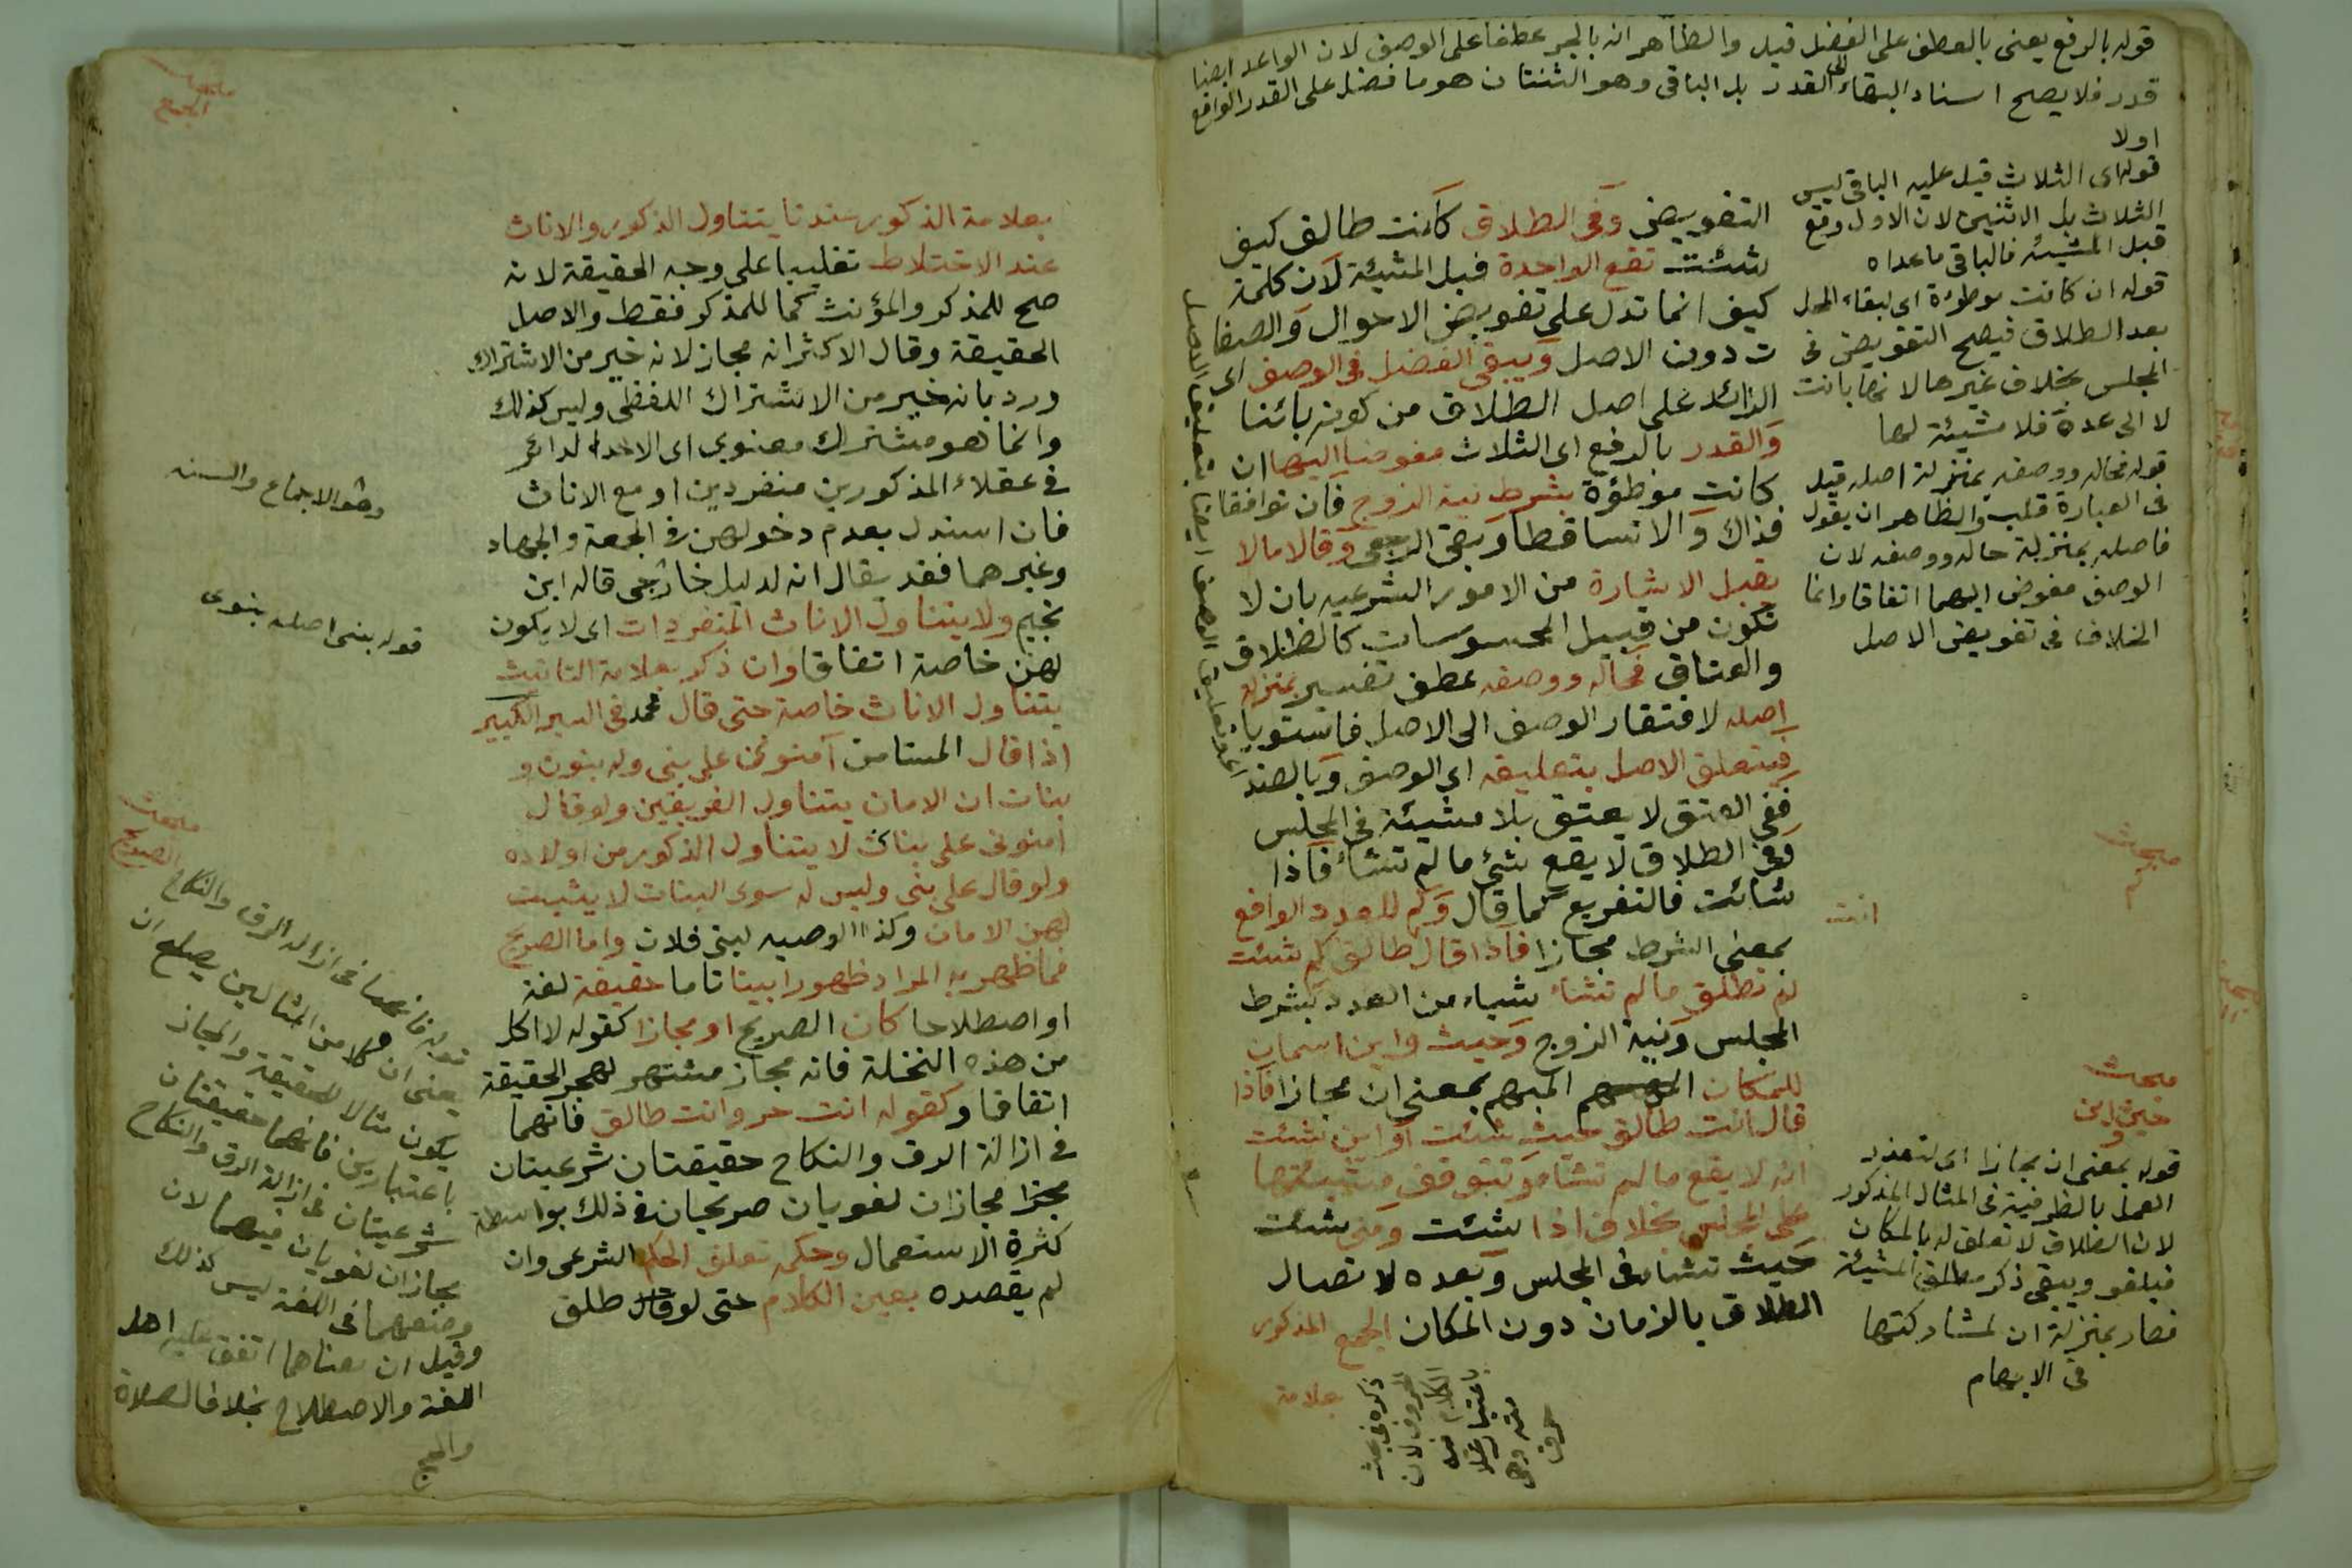 قوله بالرفع يعنى بالعطف على الفضل قيل والظاهر انه بالجر عطفا على الوصف لان الواعد ايضا
قدر فلا يصح اسناد البقاء الى القدر بل الباقى وهو الثنتان هو ما فضل على القدر الواقع
اولا
قوله اى الثلاث قيل عليه الباقى ليس
الثلاث بل الاثنين لان الاول وقع
قبل المشيئة فالباقى ما عداه
قوله ان كانت موطوءة اى لبقاء المحل
بعد الطلاق فيصح التفويض فى
المجلس بخلاف غيرها لانها بانت
لا الى عدة فلا مشيئة لها
قوله فحاله ووصفه بمنزلة اصله قيل
فى العبارة قلب والظاهر ان يقول
فاصله بمنزلة حاله ووصفه لان
الوصف مفوض اليهما اتفاقا وانما
الخلاف فى تفويض الاصل
مبحث
كم
انت
مبحث
حيث واين
قوله بمعنى ان مجازا اى لتعذر
العمل بالظرفية فى المثال المذكور
لان الطلاق لا تعلق له بالمكان
فيلغو ويبقى ذكر مطلق المشيئة
فصار بمنزلة ان لمشاركتها
فى الابهام
التفويض وفى الطلاق كانت طالق كيف
شئت تقع الواحدة قبل المشيئة لان كلمة
كيف انما تدل على تفويض الاحوال والصفا
ت دون الاصل ويبقى الفضل فى الوصف اى
الزائد على اصل الطلاق من كونه بائنا
والقدر بالرفع اى الثلاث مفوضا اليها ان
كانت موطؤة بشرط نية الزوج فان توافقا
فذاك والا تساقطا وبقى الرجعى وقالا ما لا
يقبل الاشارة من الامور الشرعيه بان لا
تكون من قبيل المحسوسات كالطلاق
والعتاق فحاله ووصفه عطف تفسير بمنزلة
اصله لافتقار الوصف الى الاصل فاستويا
فيتعلق الاصل بتعليقه اى الوصف وبالضد
ففى العتق لا يعتق بلا مشيئة فى المجلس
وفى الطلاق لا يقع شئ ما لم تشأ فاذا
شائت فالتفريع كما قال وكم للعدد الواقع
بمعنى الشرط مجازا فاذا قال طالق كم شئت
لم تطلق ما لم تشأ شياء من العدد بشرط
المجلس ونية الزوج وحيث واين اسمان
للمكان المبهم بمعنى ان مجازا فاذا
قال انت طالق حيث شئت او اين شئت
انه لا يقع ما لم تشأ وتتوقف مشيئتها
على المجلس بخلاف اذا شئت ومتى شئت
حيث تشاء فى المجلس وبعده لاتصال
الطلاق بالزمان دون المكان الجمع المذكور
بعلامة
ذكره فى بحث
الحروف لان
الكلام فيه
باعتبار علا
مته وهى
حرف
مبحث
الجمع
بعلامة الذكور عندنا يتناول الذكور والاناث
عند الاختلاط تغليبا على وجه الحقيقة لانه
صح للمذكر والمؤنث كما للمذكر فقط والاصل
الحقيقة وقال الاكثر انه مجاز لانه خير من الاشتراك
ورد بانه خير من الاشتراك اللفظى وليس كذلك
وانما هو مشترك معنوى اى الاحد الدائر
فى عقلاء المذكورين منفردين او مع الاناث
فان استدل بعدم دخولهن فى الجمعة والجهاد
وغيرهما فقد يقال انه لدليل خارجى قاله ابن
نجيم ولا يتناول الاناث المنفردات اى لا يكون
لهن خاصة اتفاقا وان ذكر بعلامة التانيث
يتناول الاناث خاصة حتى قال محمد فى السير الكبير
اذا قال المستامن آمنونى على بنى وله بنون و
بنات ان الامان يتناول الفريقين ولو قال
امنونى على بناتى لا يتناول الذكور من اولاده
ولو قال على بنى وليس له سوى البنات لا يثبت
لهن الامان وكذا الوصيه لبنى فلان واما الصريح
فما ظهر به المراد ظهورا بينا تاما حقيقة لغة
او اصطلاحا كان الصريح او مجازا كقوله لا اكل
من هذه النخلة فانه مجاز مشتهر لهجر الحقيقة
اتفاقا وكقوله انت حر وانت طالق فانهما
فى ازالة الرق والنكاح حقيقتان شرعيتان
مجازان لغويان صريحان فى ذلك بواسطة
كثرة الاستعمال وحكمه تعلق الحكم الشرعى وان
لم يقصده بعين الكلام حتى لو قال طلق
وهو الاجماع والسنه
قوله بنى اصله بنوى
مبحث
الصريح
قوله فانهما فى ازالة الرق والنكاح
يعنى ان كلا من المثالين يصلح ان
يكون مثالا للحقيقة والمجاز
باعتبارين فانهما حقيقتان
شرعيتان فى ازالة الرق والنكاح
مجازان لغويان فيهما لان
وضعهما فى اللغة ليس كذلك
وقيل ان معناهما اتفق عليه اهل
اللغة والاصطلاح بخلاف الصلاة
والحج